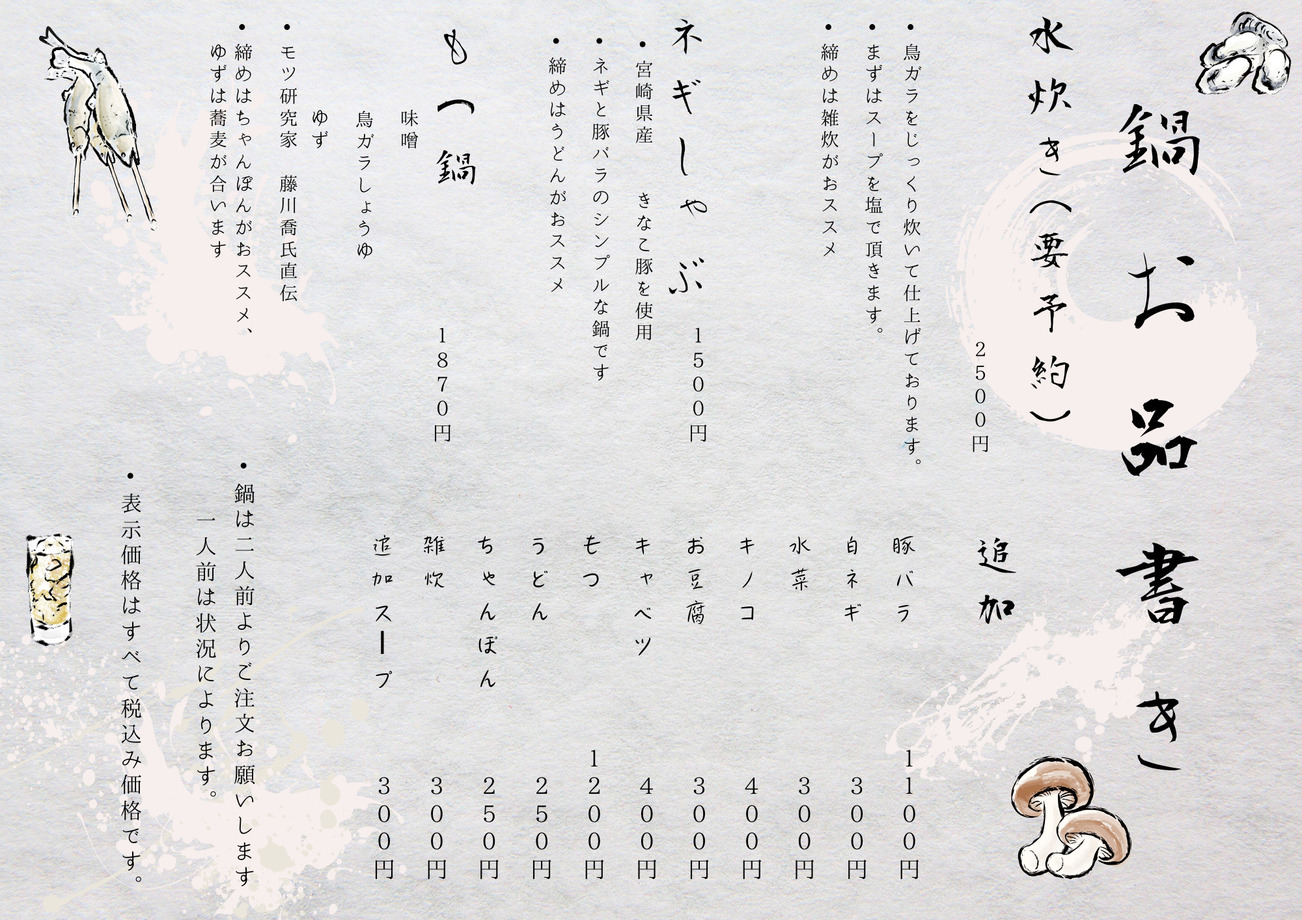 鍋お品書き
水炊き（要予約）
2500円
・鳥ガラをじっくり炊いて仕上げております。
・まずはスープを塩で頂きます。
・締めは雑炊がおススメ
ネギしゃぶ
1500円
・宮崎県産　きなこ豚を使用
・ネギと豚バラのシンプルな鍋です
・締めはうどんがおススメ
もつ鍋
1870円
味噌
鳥ガラしょうゆ
ゆず
・モツ研究家　藤川喬氏直伝
・締めはちゃんぽんがおススメ、
ゆずは蕎麦が合います
追加
豚バラ　1100円
白ネギ　300円
水菜　300円
キノコ　400円
お豆腐　300円
キャベツ　400円
もつ　1200円
うどん　250円
ちゃんぽん　250円
雑炊　300円
追加スープ　300円
・鍋は二人前よりご注文お願いします
一人前は状況によります。
・表示価格はすべて税込み価格です。